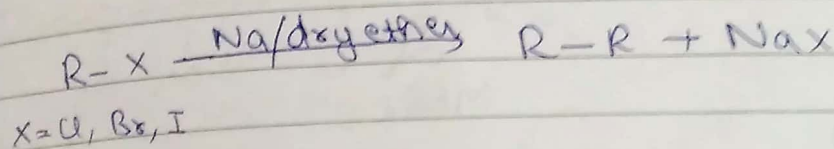 R-X Na/dry ether R-R + NaX
X=Cl, Br, I